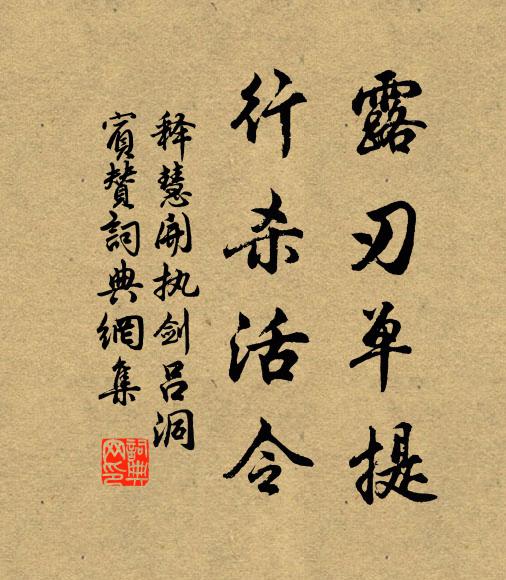 露刃单提
行杀活令
释慧开执剑吕洞
宾赞詞典網集
詞典
网印